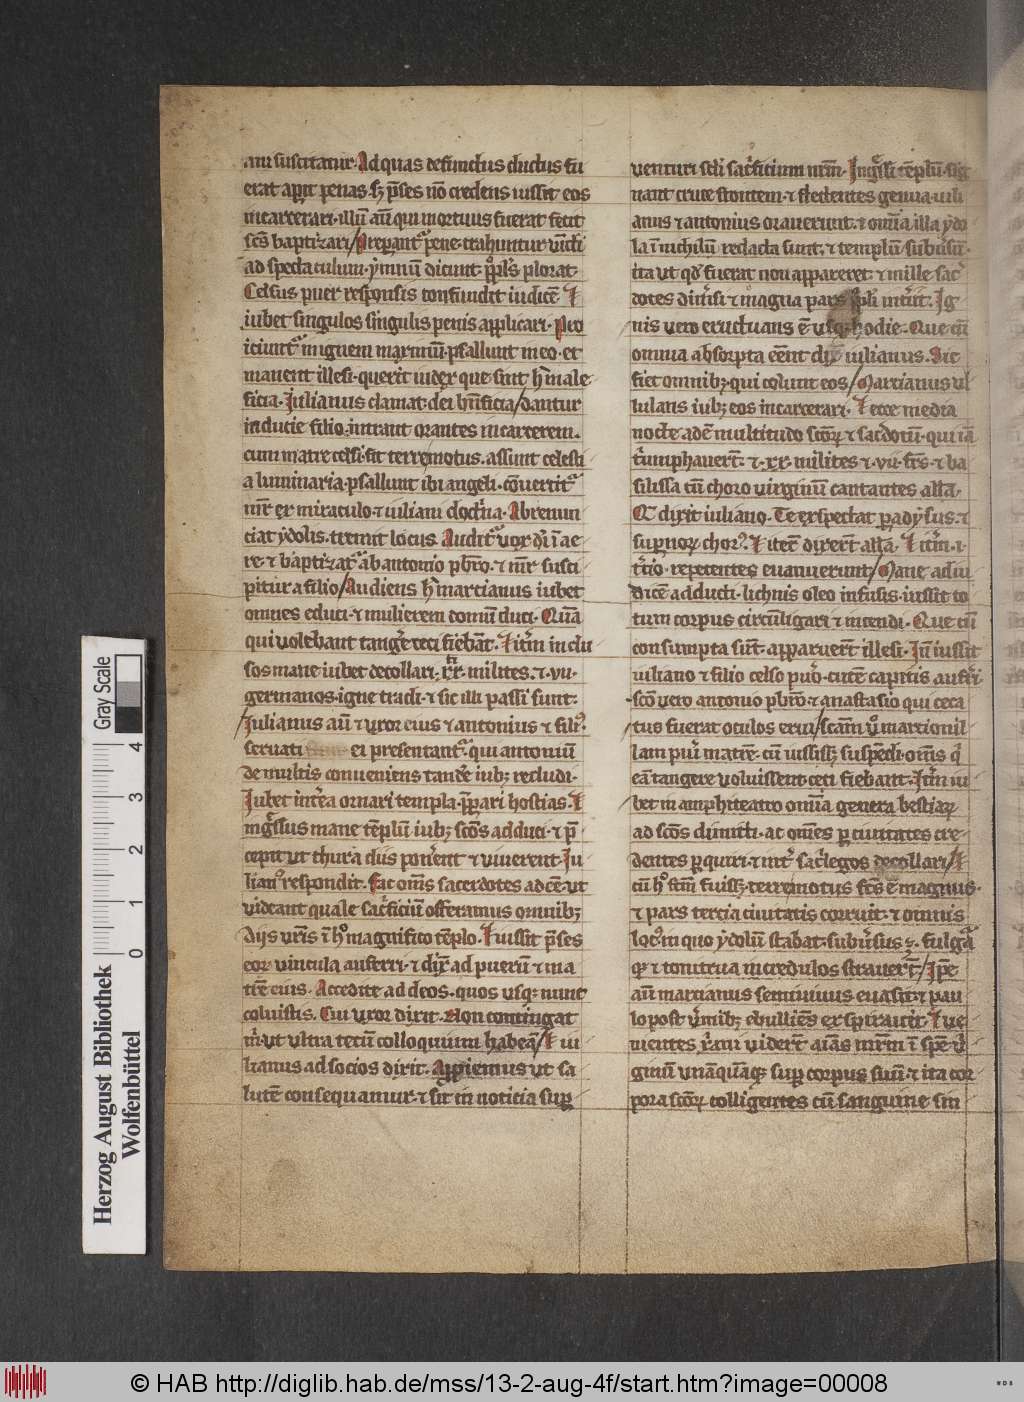 am suscitatur. Ad quas defunctus ductus fu
erat aptit penas. sꝫ p̄ses nō credens iussit eos
incarcerari. illū aū qui mortuus fuerat fecit
scūs baptizari / Preparant᷑ pene. trahuntur
ad spectaculum. ymnū dicunt. ppl's plorat.
Celsus puer responsis confundit iudicē. Et
iubet singulos singulis penis applicari. Pro
iciunt᷑ in ignem maximū. psallunt in eo. et
manent illesi. querit iudex que sint hͥ male
ficia. Julianus clamat. dei bn̄ficia / dantur
inducie filio. intrant orantes in carcerem.
cum matre celsi. fit terremotus. assunt celesti
a luminaria. psallunt ibi angeli. cōuertit᷑
mr̄ ex miraculo. et iuliani doctͥna. Abrenun
ciat ydolis. tremit locus. Audit᷑ uox dn̄i ī ae
re. et baptizat᷑ ab antonio pbr̄o. et mr̄ susci
pitur a filio / Audiens hͥ martianus iubet
omnes educi. et mulierem domū duci. Quā
qui uolebant tangere ceci fiebāt. Et itm̄ inclu
sos mane iubet decollari. xx. milites. et. vii.
germanos. igne tradi. et sic illi passi sunt.
Julianus aū et uxor eius et antonius et fili᷒
seruati ei presentant᷑. qui antoniū
de multis conueniens tandē iubꝫ recludi.
Jubet int'ea ornari templa. p̄pari hostias. Et
ingressus mane tēplū iubꝫ scōs adduci. et p̄
cepit ut thura diis ponerent et uiuerent. Ju
lian᷒ respondit. Fac om̄s sacerdotes adeē ut
uideant quale sacͥficiū offeramus omnibꝫ
diis ur̄is ī hͦ magnifico tēplo. Et iussit p̄ses
eoꝝ uincula auferri. et dix̄ ad puerū et ma
trē eius. Accedite ad deos. quos usqꝫ nunc
coluistis. Cui uxor dixit. Non contingat
mͥ. ut ultra tecū colloquium habeā / Et iu
lianus ad socios dixit. Appiemus ut sa
lutē consequamur. et sit in noticia supͥ
uenturi sc̄li sacͥficium nr̄m. Ingͥssi tēplū. sig
nant cruce frontem. et flectentes genua. iuli
anus et antonius orauerunt. et om̄ia illa ydo
la ī nichilū redacta sunt. et templū subūsū.
ita ut qd̄ fuerat non appareret. et mille sac̄
dotes diūsi et magna pars ppl'i int'iit. Ig
nis uero eructuans ē usqꝫ hodie. Que cū
omnia absorpta eēnt dix̄ iulianus. Sic
fiet omnibꝫ qui colunt eos / Martianus ul
lulans iubꝫ eos incarcerari. Et ecce media
nocte adē multitudo scōꝝ et sac'dotū. qui iā
tͥumphauerūt. et xx. milites et. vii. fr̄s. et ba
silissa cū choro uirginū cantantes all'a.
Et dixit iuliano. Te exspectat paradysus. et
supnoꝝ chor᷒. Et iterū dixerūt all'a. Et itm̄. i.
tͥcio. repetentes euanuerunt / Mane ad iu
dicē adducti. lichnis oleo infusis. iussit to
tum corpus circūligari et incendi. Que cū
consumpta sūt. apparuerūt illesi. Iñ iussit
iuliano et filio celso pu'o. cutē capitis aufͥri
scō uero antonio pbr̄o. et anastasio qui ceca
tus fuerat oculos erui / scām uͦ martionil
lam pu'i matrē. cū iussissꝫ suspēdi. om̄s qͥ
eā tangere uoluissent. ceci fiebant. Itm̄ iu
bet in amphiteatro om̄ia genera bestiaꝝ
ad scōs dimitti. ac om̄es per ciuitates cre
dentes perquiri. et int' sacͥlegos decollari / Et
cū hͦ fc̄m fuissꝫ. terremotus fc̄s ē magnus.
et pars tercia ciuitatis corruit. et omnis
loc᷒ in quo ydolū stabat. subūsus ē. fulg᷑a
qꝫ et tonitrua incredulos strauerūt / Ipē
aū martianus seminiuus euasit. et pau
lo post ūmibꝫ ebulliēs exspirauit. Et ue
nientes xͥani uiderūt aīas mr̄m ī spē uͥ
ginū unā quāqꝫ supͥ corpus suū. et ita cor
pora scōꝝ colligentes cū sanguine sin
Herzog August Bibliothek
Wolfenbüttel
Gray Scale
0 1 2 3 4
© HAB http://diglib.hab.de/mss/13-2-aug-4f/start.htm?image=00008